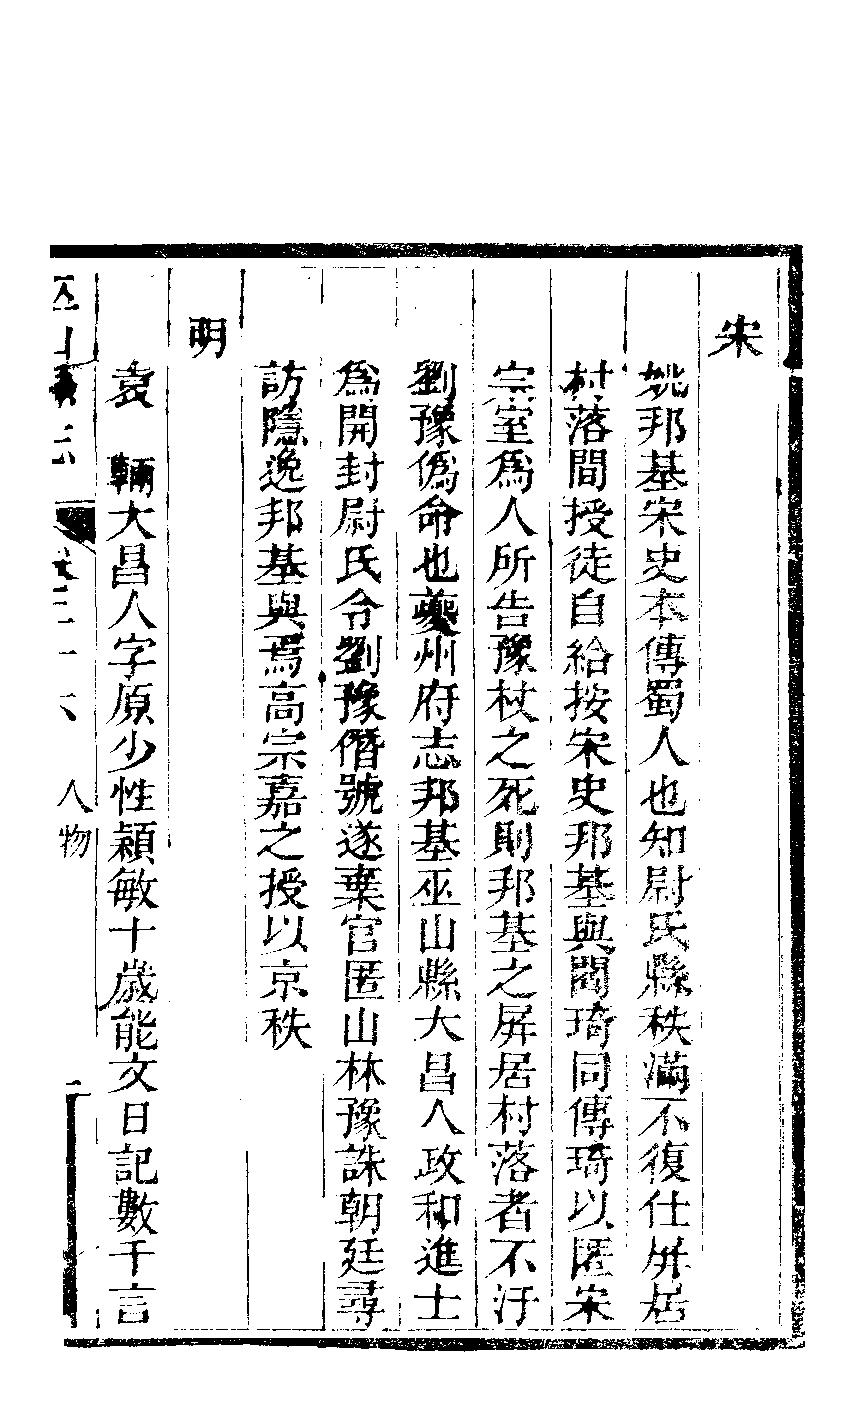 宋
姚邦基宋史本傳蜀人也知尉氏縣秩滿不復仕屏居
村落間授徒自給按宋史邦基與閻琦同傳琦以匿宋
宗室爲人所告豫杖之死則邦基之屏居村落者不汙
劉豫僞命也夔州府志邦基巫山縣大昌人政和進士
爲開封尉氏令劉豫僭號遂棄官匿山林豫誅朝廷尋
訪隱逸邦基與焉高宗嘉之授以京秩
明
袁　輔大昌人字原少性穎敏十歲能文日記數千言
巫山縣志 卷三十六 人物